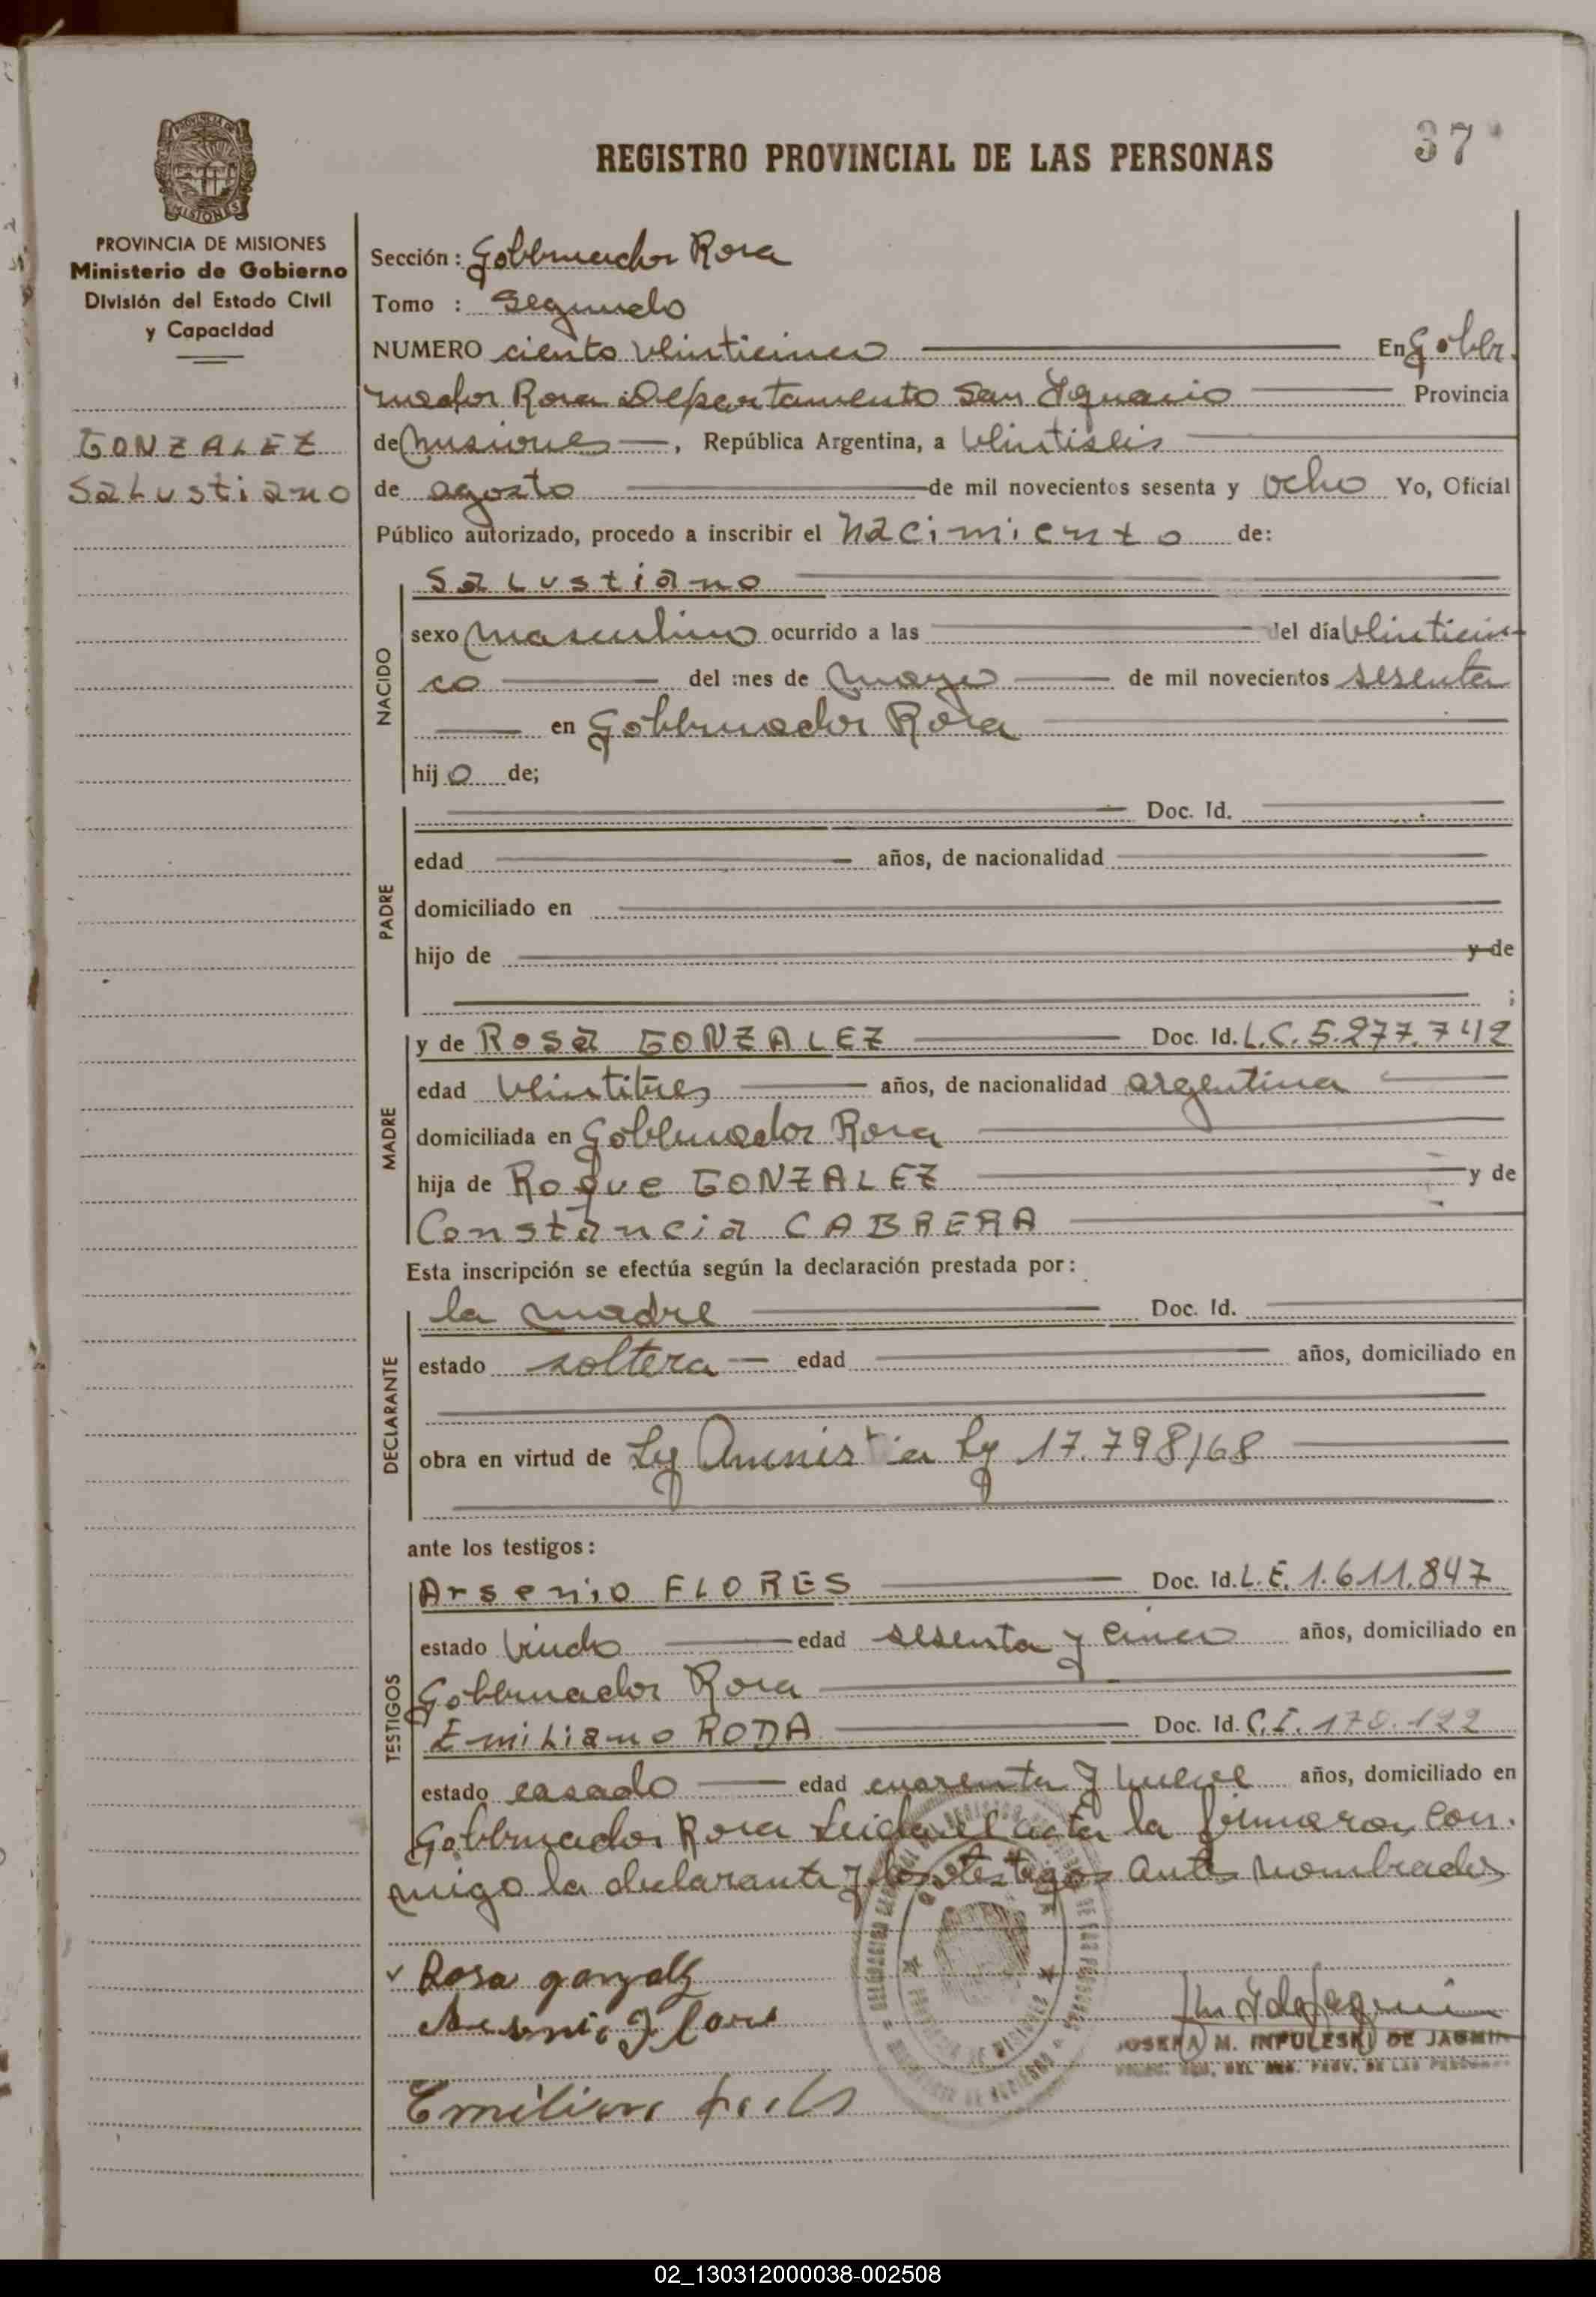 REGISTRO PROVINCIAL DE LAS PERSONAS
37
PROVINCIA DE
MISIONES
PROVINCIA DE MISIONES
Ministerio de Gobierno
División del Estado Civil
y Capacidad
GONZALEZ
Salustiano
Sección: Gobernador Roca
Tomo : Segundo
NUMERO ciento veinticinco En Gober
nador Roca Departamento San Ignacio Provincia
de Misiones, República Argentina, a veintiseis
de agosto de mil novecientos sesenta y ocho Yo, Oficial
Público autorizado, procedo a inscribir el nacimiento de:
Salustiano
NACIDO
sexo masculino ocurrido a las del día veinticin-
co del mes de mayo de mil novecientos sesenta
en Gobernador Roca
hijo de;
PADRE
Doc. Id.
edad años, de nacionalidad
domiciliado en
hijo de y de
;
MADRE
y de Rosa GONZALEZ Doc. Id. L.C. 5.277.742
edad veintitres años, de nacionalidad argentina
domiciliada en Gobernador Roca
hija de Roque GONZALEZ y de
Constancia CABRERA
Esta inscripción se efectúa según la declaración prestada por:
DECLARANTE
la madre Doc. Id.
estado soltera edad años, domiciliado en
obra en virtud de Ley Amnistia Ley 17.798/68
ante los testigos:
TESTIGOS
Arsenio FLORES Doc. Id. L.E. 1.611.847
estado viudo edad sesenta y cinco años, domiciliado en
Gobernador Roca
Emiliano RODA Doc. Id. C.I. 170.122
estado casado edad cuarenta y nueve años, domiciliado en
Gobernador Roca Leida el acta la firmaron con.
migo la declarante y los testigos antes nombrados
Rosa gonzalez
Arsenio Flores
JOSEFA M. INPULESKI DE JASMIN
Emiliano
02_130312000038-002508